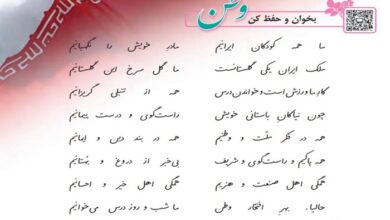 بخوان و حفظ کن
وطن
ما همه کودکان ایرانیم مادر خویش را نگهبانیم
ملک ایران یکی گلستانست ما گل سرخ این گلستانیم
کار ما ورزش است و خواندن درس همه از تنبلی گریزانیم
چون نیاکان باستانی خویش راست‌گوی و درست پیمانیم
همه در فکر ملّت و وطنیم همه در بند دین و ایمانیم
همه پاکیم و راست‌گوی و شریف بی‌خبر از دروغ و بهتانیم
همگی اهل صنعت و هنریم همگی اهل خیر و احسانیم
حالیا، بهر افتخار وطن ما شب و روز درس می‌خوانیم